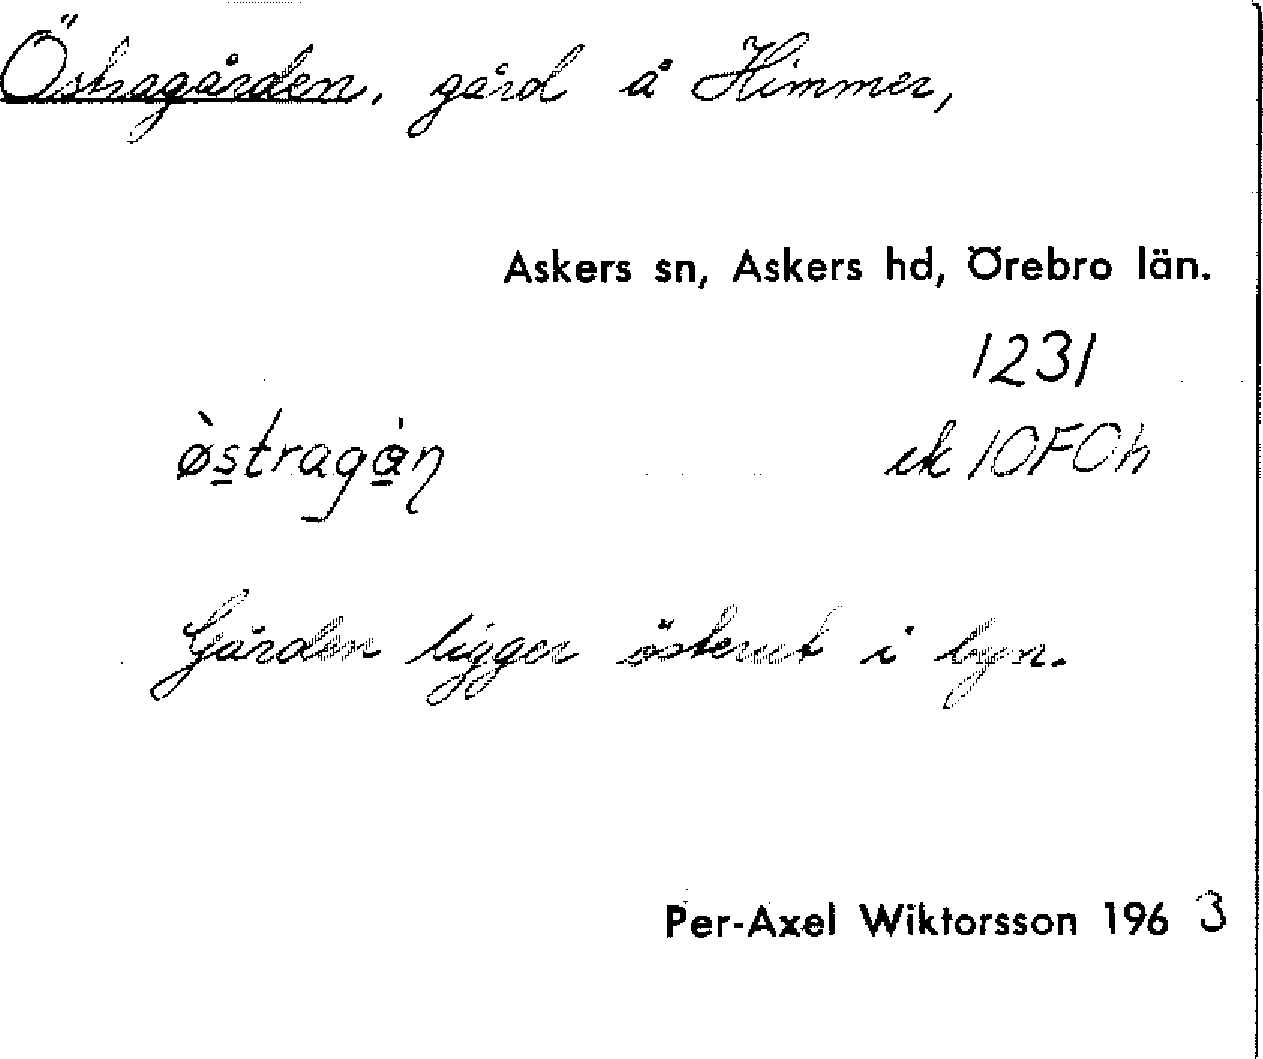 Östragården, gård å Himmer,
Askers sn, Askers hd, Örebro län.
1231
østragån ek 10F0h
Gården ligger österut i byn.
Per-Axel Wiktorsson 1963